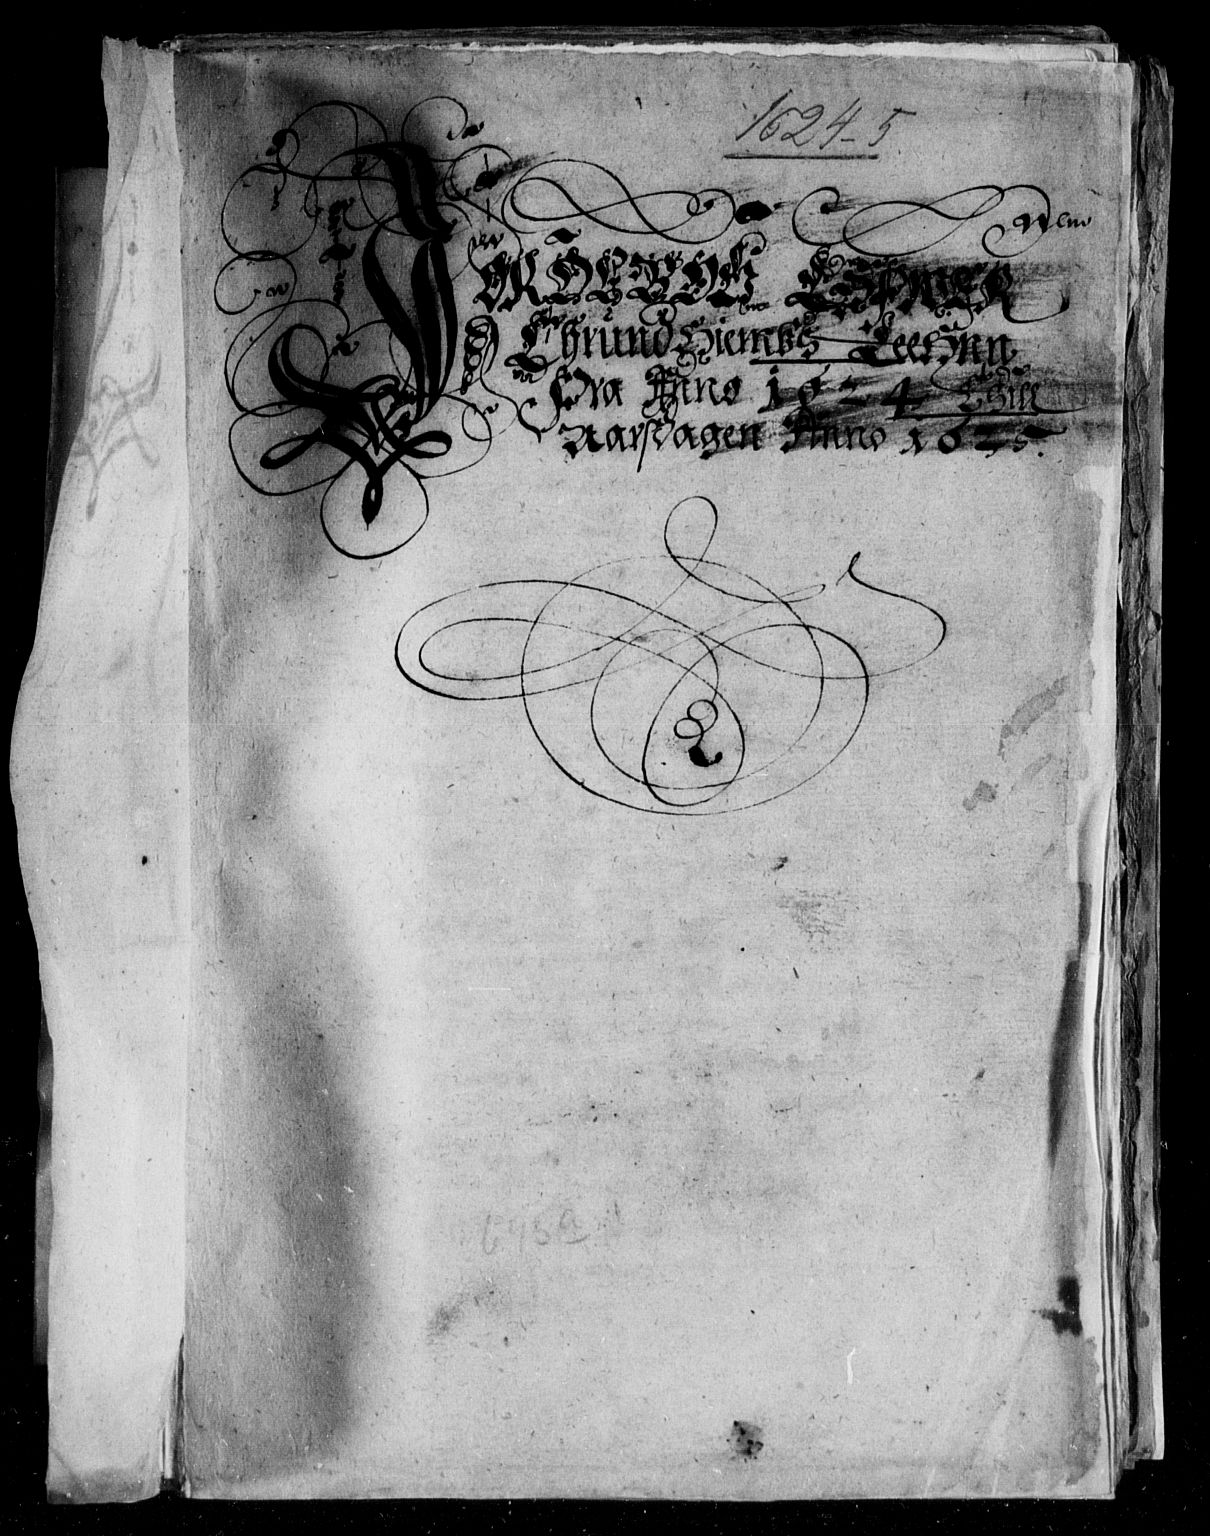 1624-5
IORDEBOG OFFUER
Thrundhiembs Leehnn
Fra Anno 1624 Thill
Aarsdagen Anno 1625.